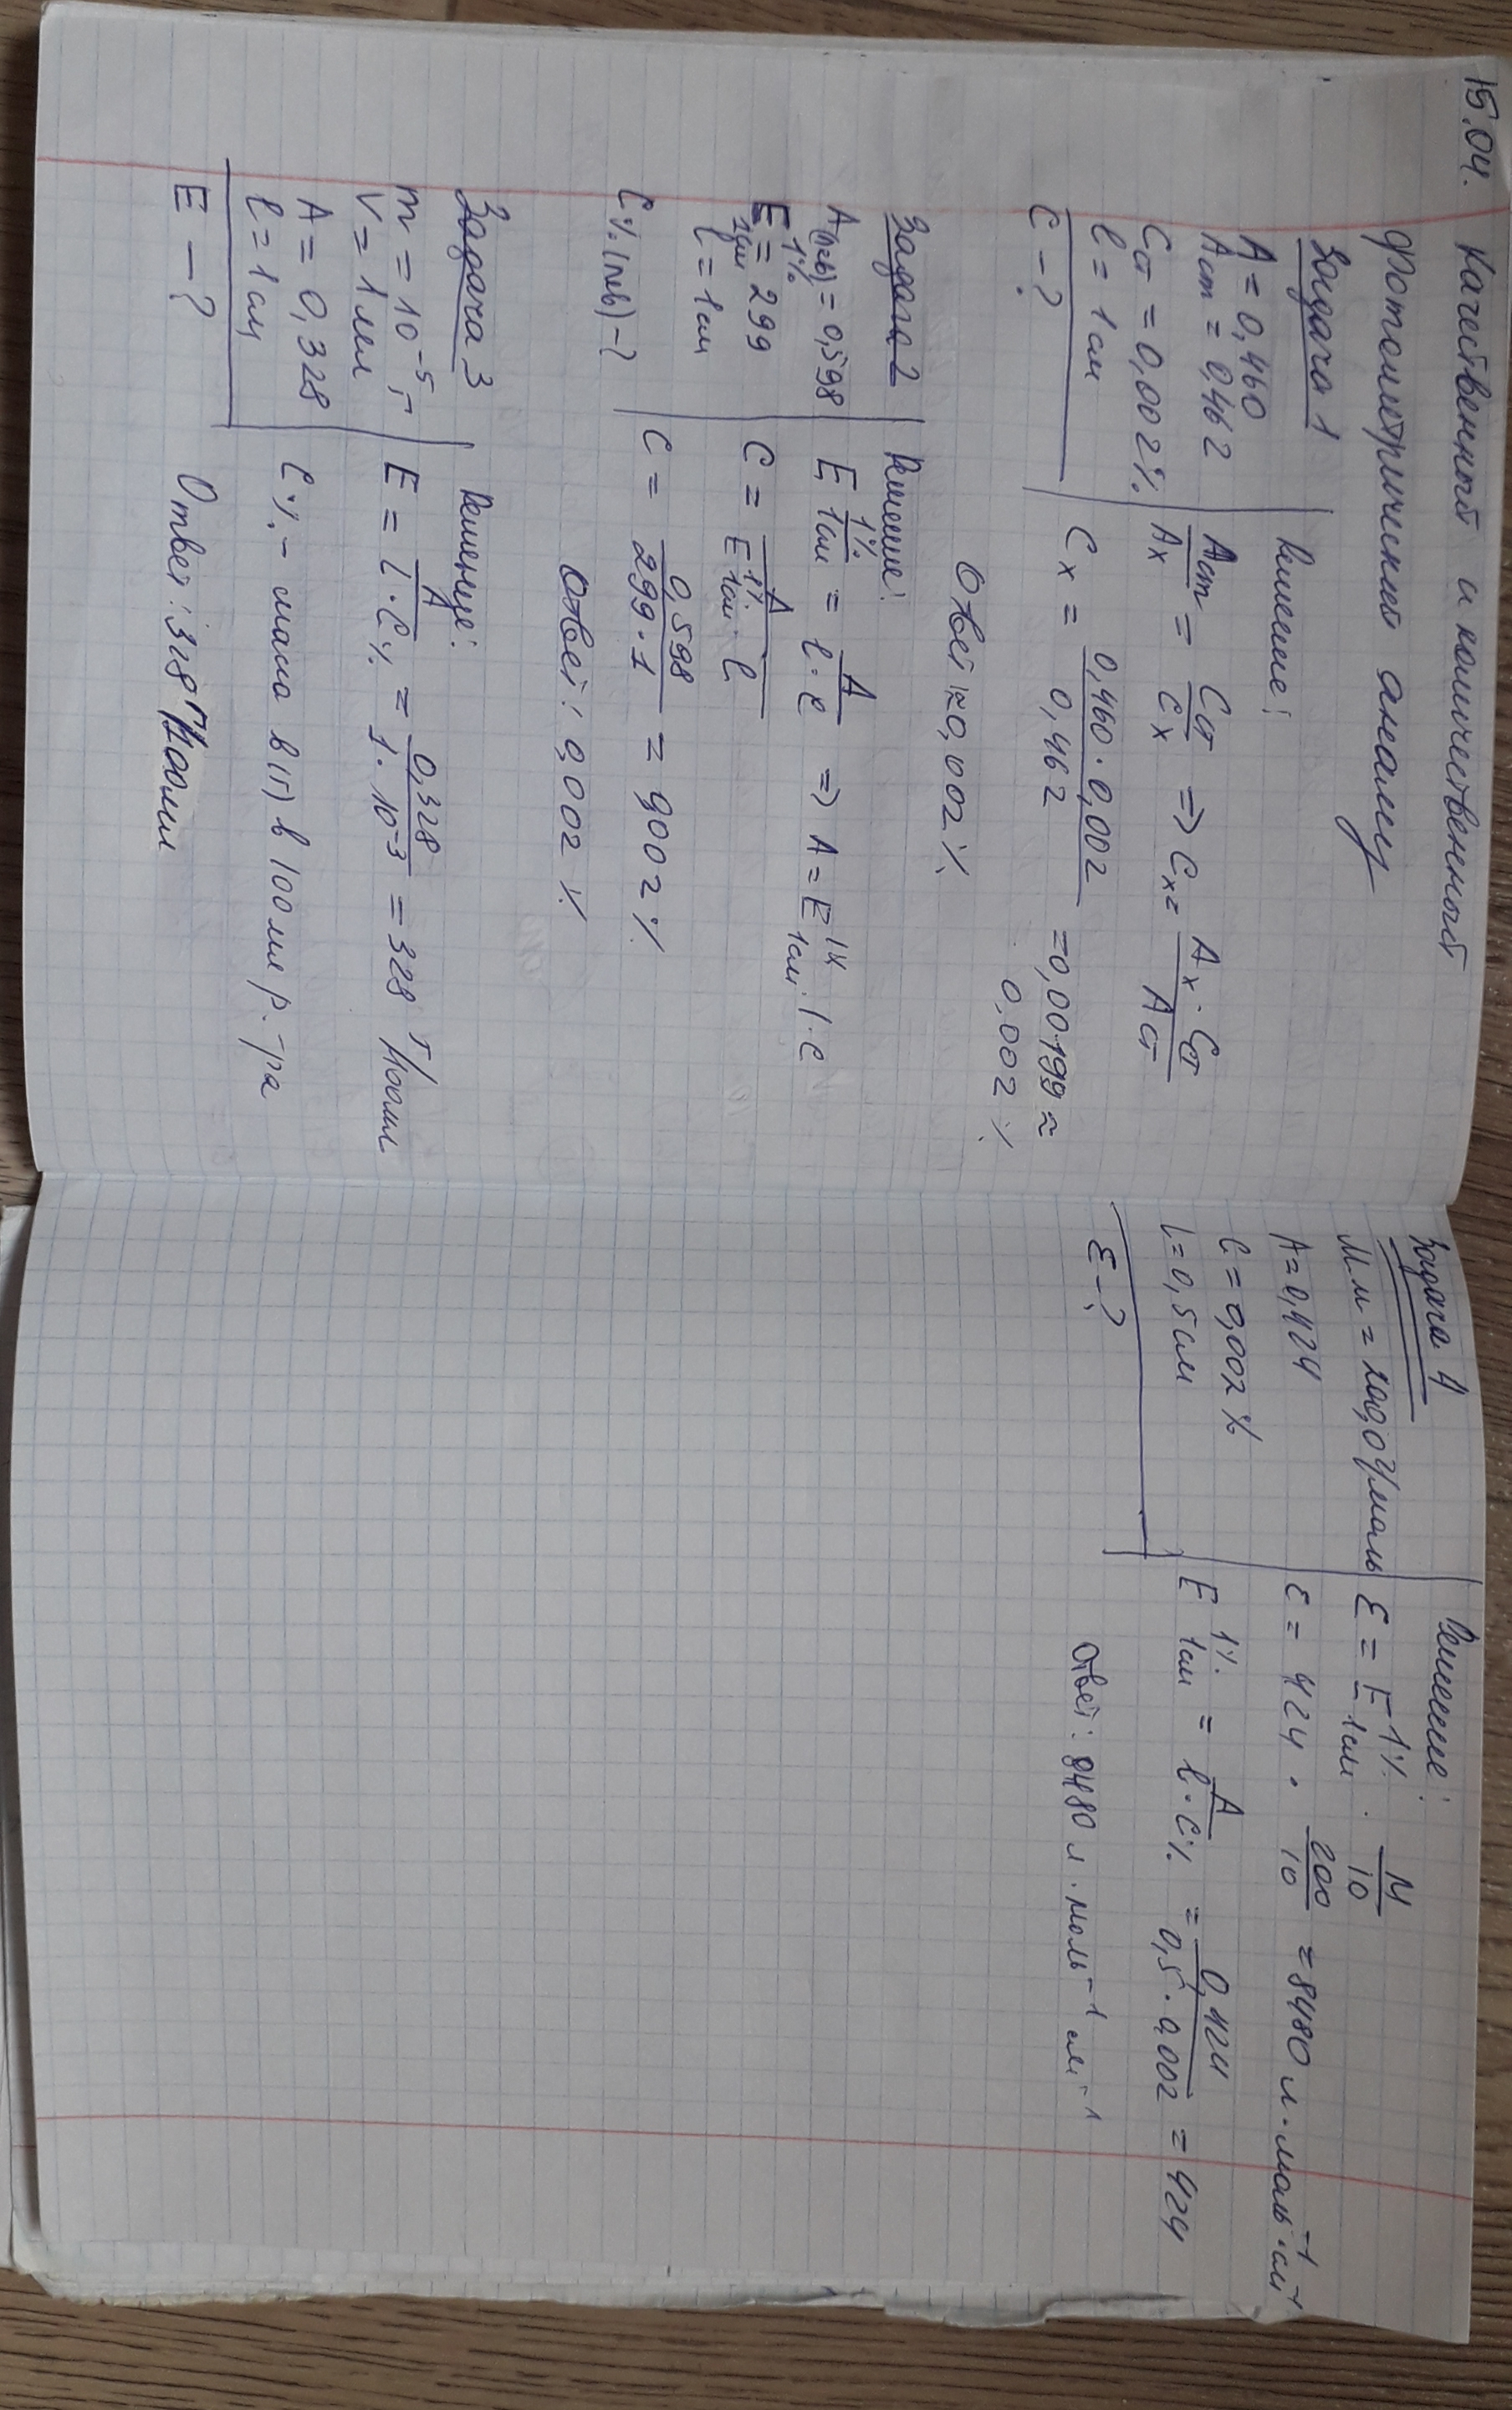 15.04. Качественный и количественный
фотометрический анализ
Задача 1
A = 0,460
Aст = 0,462
Cст = 0,002%
l = 1 см
C - ?
Решение:
Aст/Ax = Cст/Cx => Cx = Ax · Cст/Aст
Cx = 0,460 · 0,002/0,462 = 0,00199 ≈
0,002 %
Ответ: ≈0,002 %
Задача 2
A = 0,598
E 1% 1см = 299
l = 1 см
C% - ?
Решение:
E 1% 1см = A/l·c => A = E 1% 1см · l · c
C = A/E 1% 1см · l
C = 0,598/299 · 1 = 0,002 %
Ответ: 0,002 %
Задача 3
m = 10⁻⁵ г
V = 1 мл
A = 0,328
l = 1 см
E - ?
Решение:
E = A/l · C% = 0,328/1 · 10⁻³ = 328 г/100мл
C% - масса в (г) в 100 мл р-ра
Ответ: 328 г/100мл
Задача 4
M.м = 200,0 г/моль
A = 0,424
C = 0,002 %
l = 0,5 см
ε - ?
Решение:
ε = E 1% 1см · M/10
ε = 424 · 200/10 = 8480 л · моль⁻¹ · см⁻¹
E 1% 1см = A/l · C% = 0,424/0,5 · 0,002 = 424
Ответ: 8480 л · моль⁻¹ см⁻¹